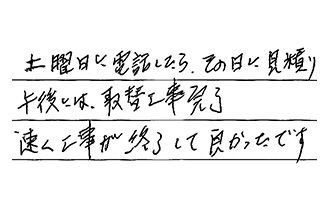 土曜日に電話したら、その日に見積り
午後には、取替工事完了
速く工事が終了して良かったです